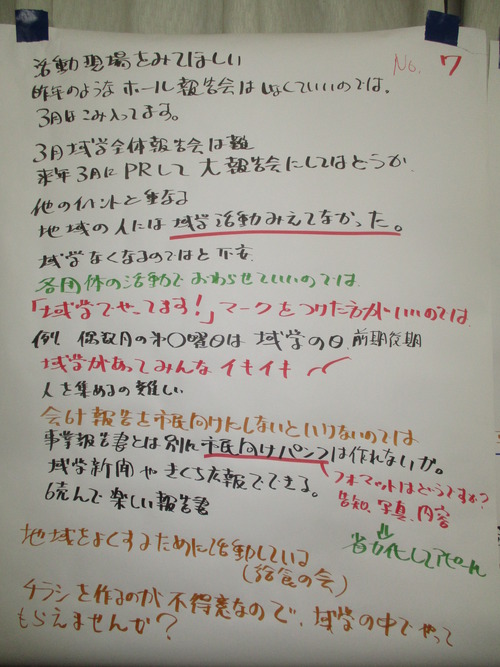 No. 7
活動現場をみてほしい
昨年のようなホール報告会はしなくていいのでは。
3月はこみ入ってます。
3月域学全体報告会は難
来年3月にPRして大報告会にしてはどうか
他のイベントと重なる
地域の人には域学活動みえてなかった。
域学なくなるのではと不安
各団体の活動でおわらせていいのでは
「域学でやってます!」マークをつけた方がいいのでは
例 偶数月の第〇曜日は域学の日 前期後期
域学があってみんなイキイキ
人を集めるの難しい
会計報告も市民向けにしないといけないのでは
事業報告書とは別に市民向けパンフは作れないか。
域学新聞やきくち広報でできる。
フォマットはどうですか?
告知、写真、内容
⇓
省力化してアピール
読んで楽しい報告書
地域をよくするために活動している
(給食の会)
チラシを作るのが不得意なので、域学の中でやって
もらえませんか?